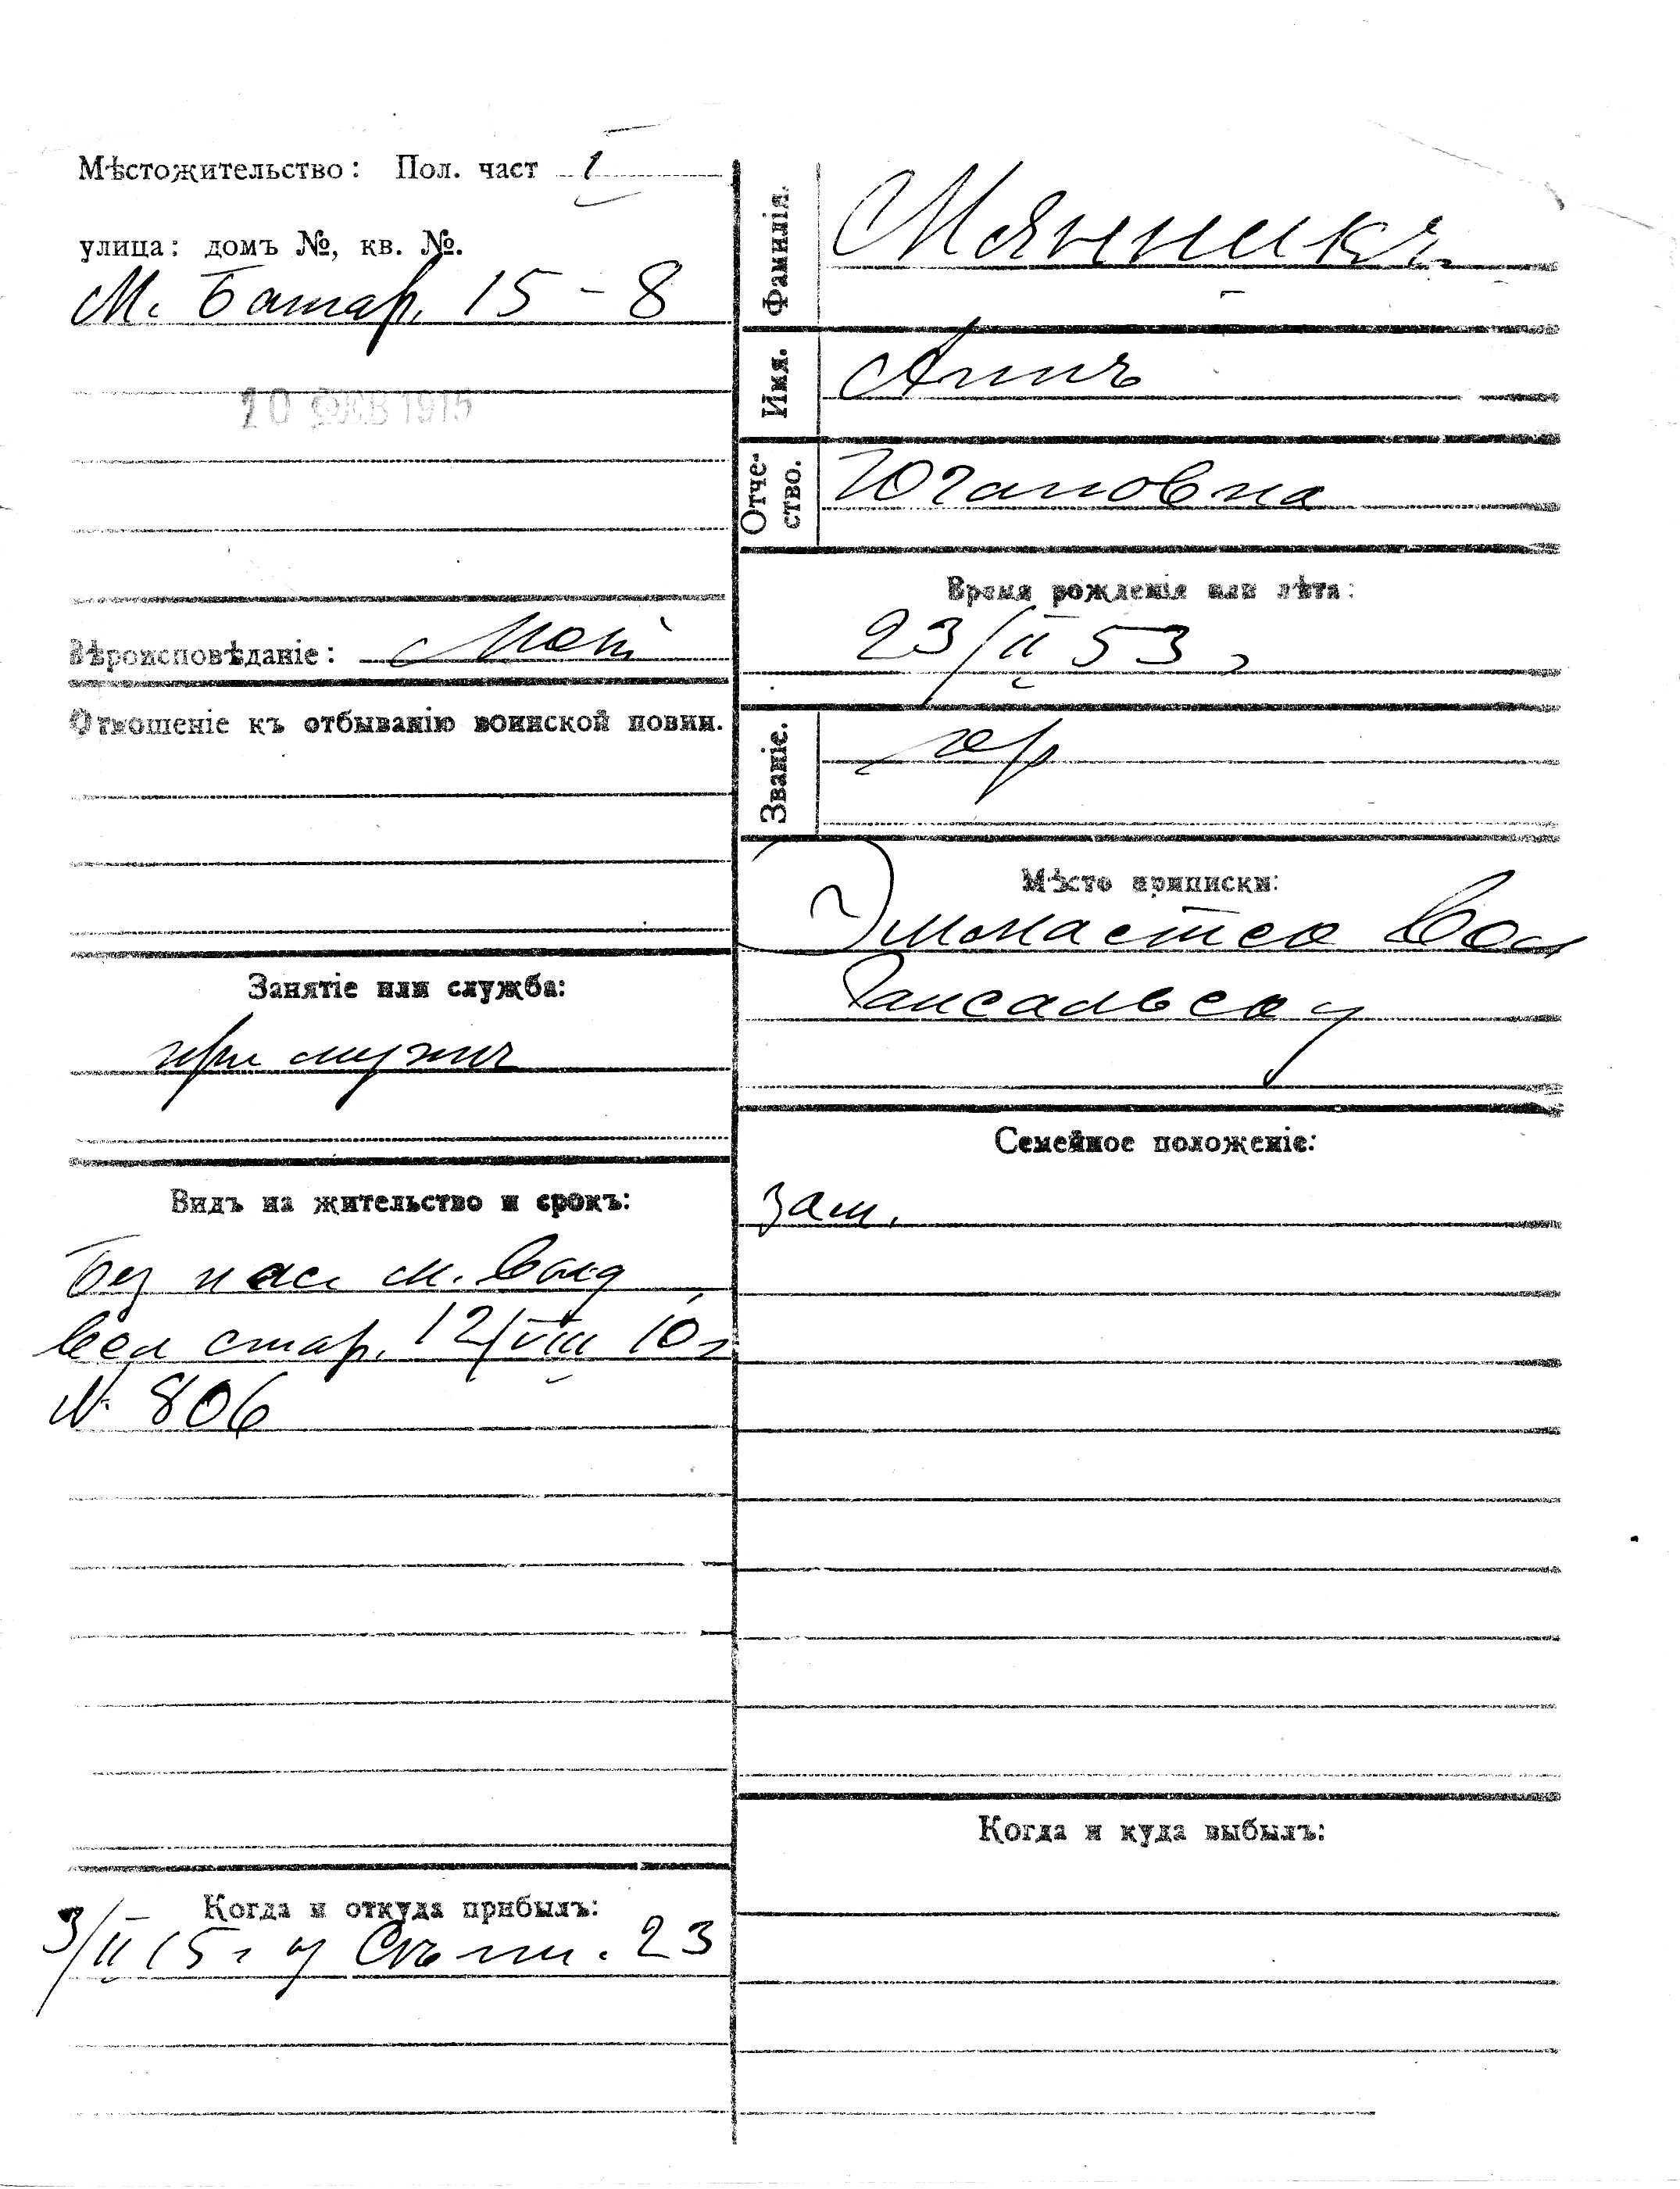 Мѣстожительство: Пол. част I
улица: домъ №, кв. №.
М. Батар. 15-8
10 ФЕВ 1915
Вѣроисповѣданіе:
Отношеніе къ отбыванію воинской повин.
Занятіе или служба:
при мужѣ
Видъ на жительство и срокъ:
Без пас
вол стар. 12/VIII 10 г
№ 806
Когда и откуда прибылъ:
3/II 15 г 23
Фамилія.
Мянникъ
Имя.
Анна
Отче-
ство.
Югановна
Время рожденія или лѣта:
23/II 53 г
Званіе.
кр
Мѣсто приписки:
Вол
Гапсальск у
Семейное положеніе:
зам.
Когда и куда выбылъ: